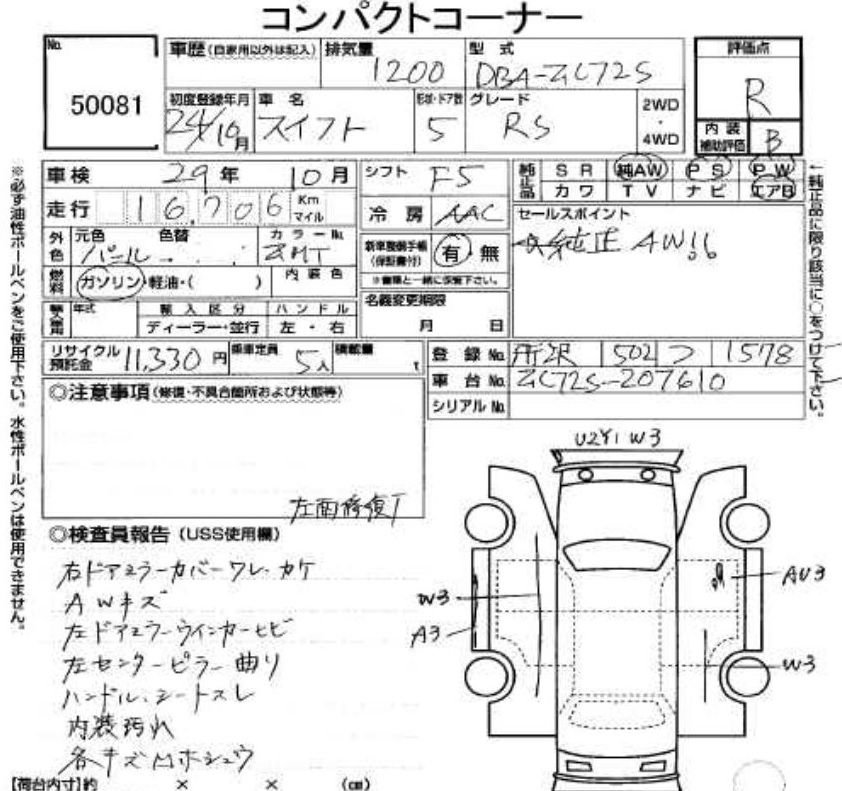 コンパクトコーナー
No. 50081
車歴(自家用以外は記入)
排気量 1200
型式 DBA-ZC72S
評価点 R
初度登録年月 24/10月
車名 スイフト
形状・ドア数 5
グレード RS
2WD・4WD
内装補助評価 B
車検 29年 10月
シフト F5
純正品 SR 純AW PS PW
カワ TV ナビ エアB
走行 16,706 Km マイル
冷房 AAC
セールスポイント
純正AW!!
外色 元色 パール 色替 カラーNo. ZMT
新車整備手帳(保証書付) 有・無
※書類と一緒に保管下さい。
燃料 ガソリン・軽油・( ) 内装色
名義変更期限 月 日
年式 輸入区分 ハンドル
ディーラー・並行 左・右
リサイクル預託金 11,330円 乗車定員 5人 積載量 t
登録No. 所沢 502 つ 1578
車台No. ZC72S-207610
シリアルNo.
◎注意事項(修復・不具合箇所および状態等)
左面修復丁
◎検査員報告(USS使用欄)
右ドアミラーカバーワレ、カケ
AWキズ
左ドアミラーウインカーヒビ
左センターピラー曲リ
ハンドル、シートスレ
内装汚れ
各キズ凹ホシュウ
【荷台内寸】約 × × (cm)
U2Y1 W3
W3
A3
AU3
W3
※必ず油性ボールペンをご使用下さい。水性ボールペンは使用できません。
←純正品に限り該当に○をつけて下さい。